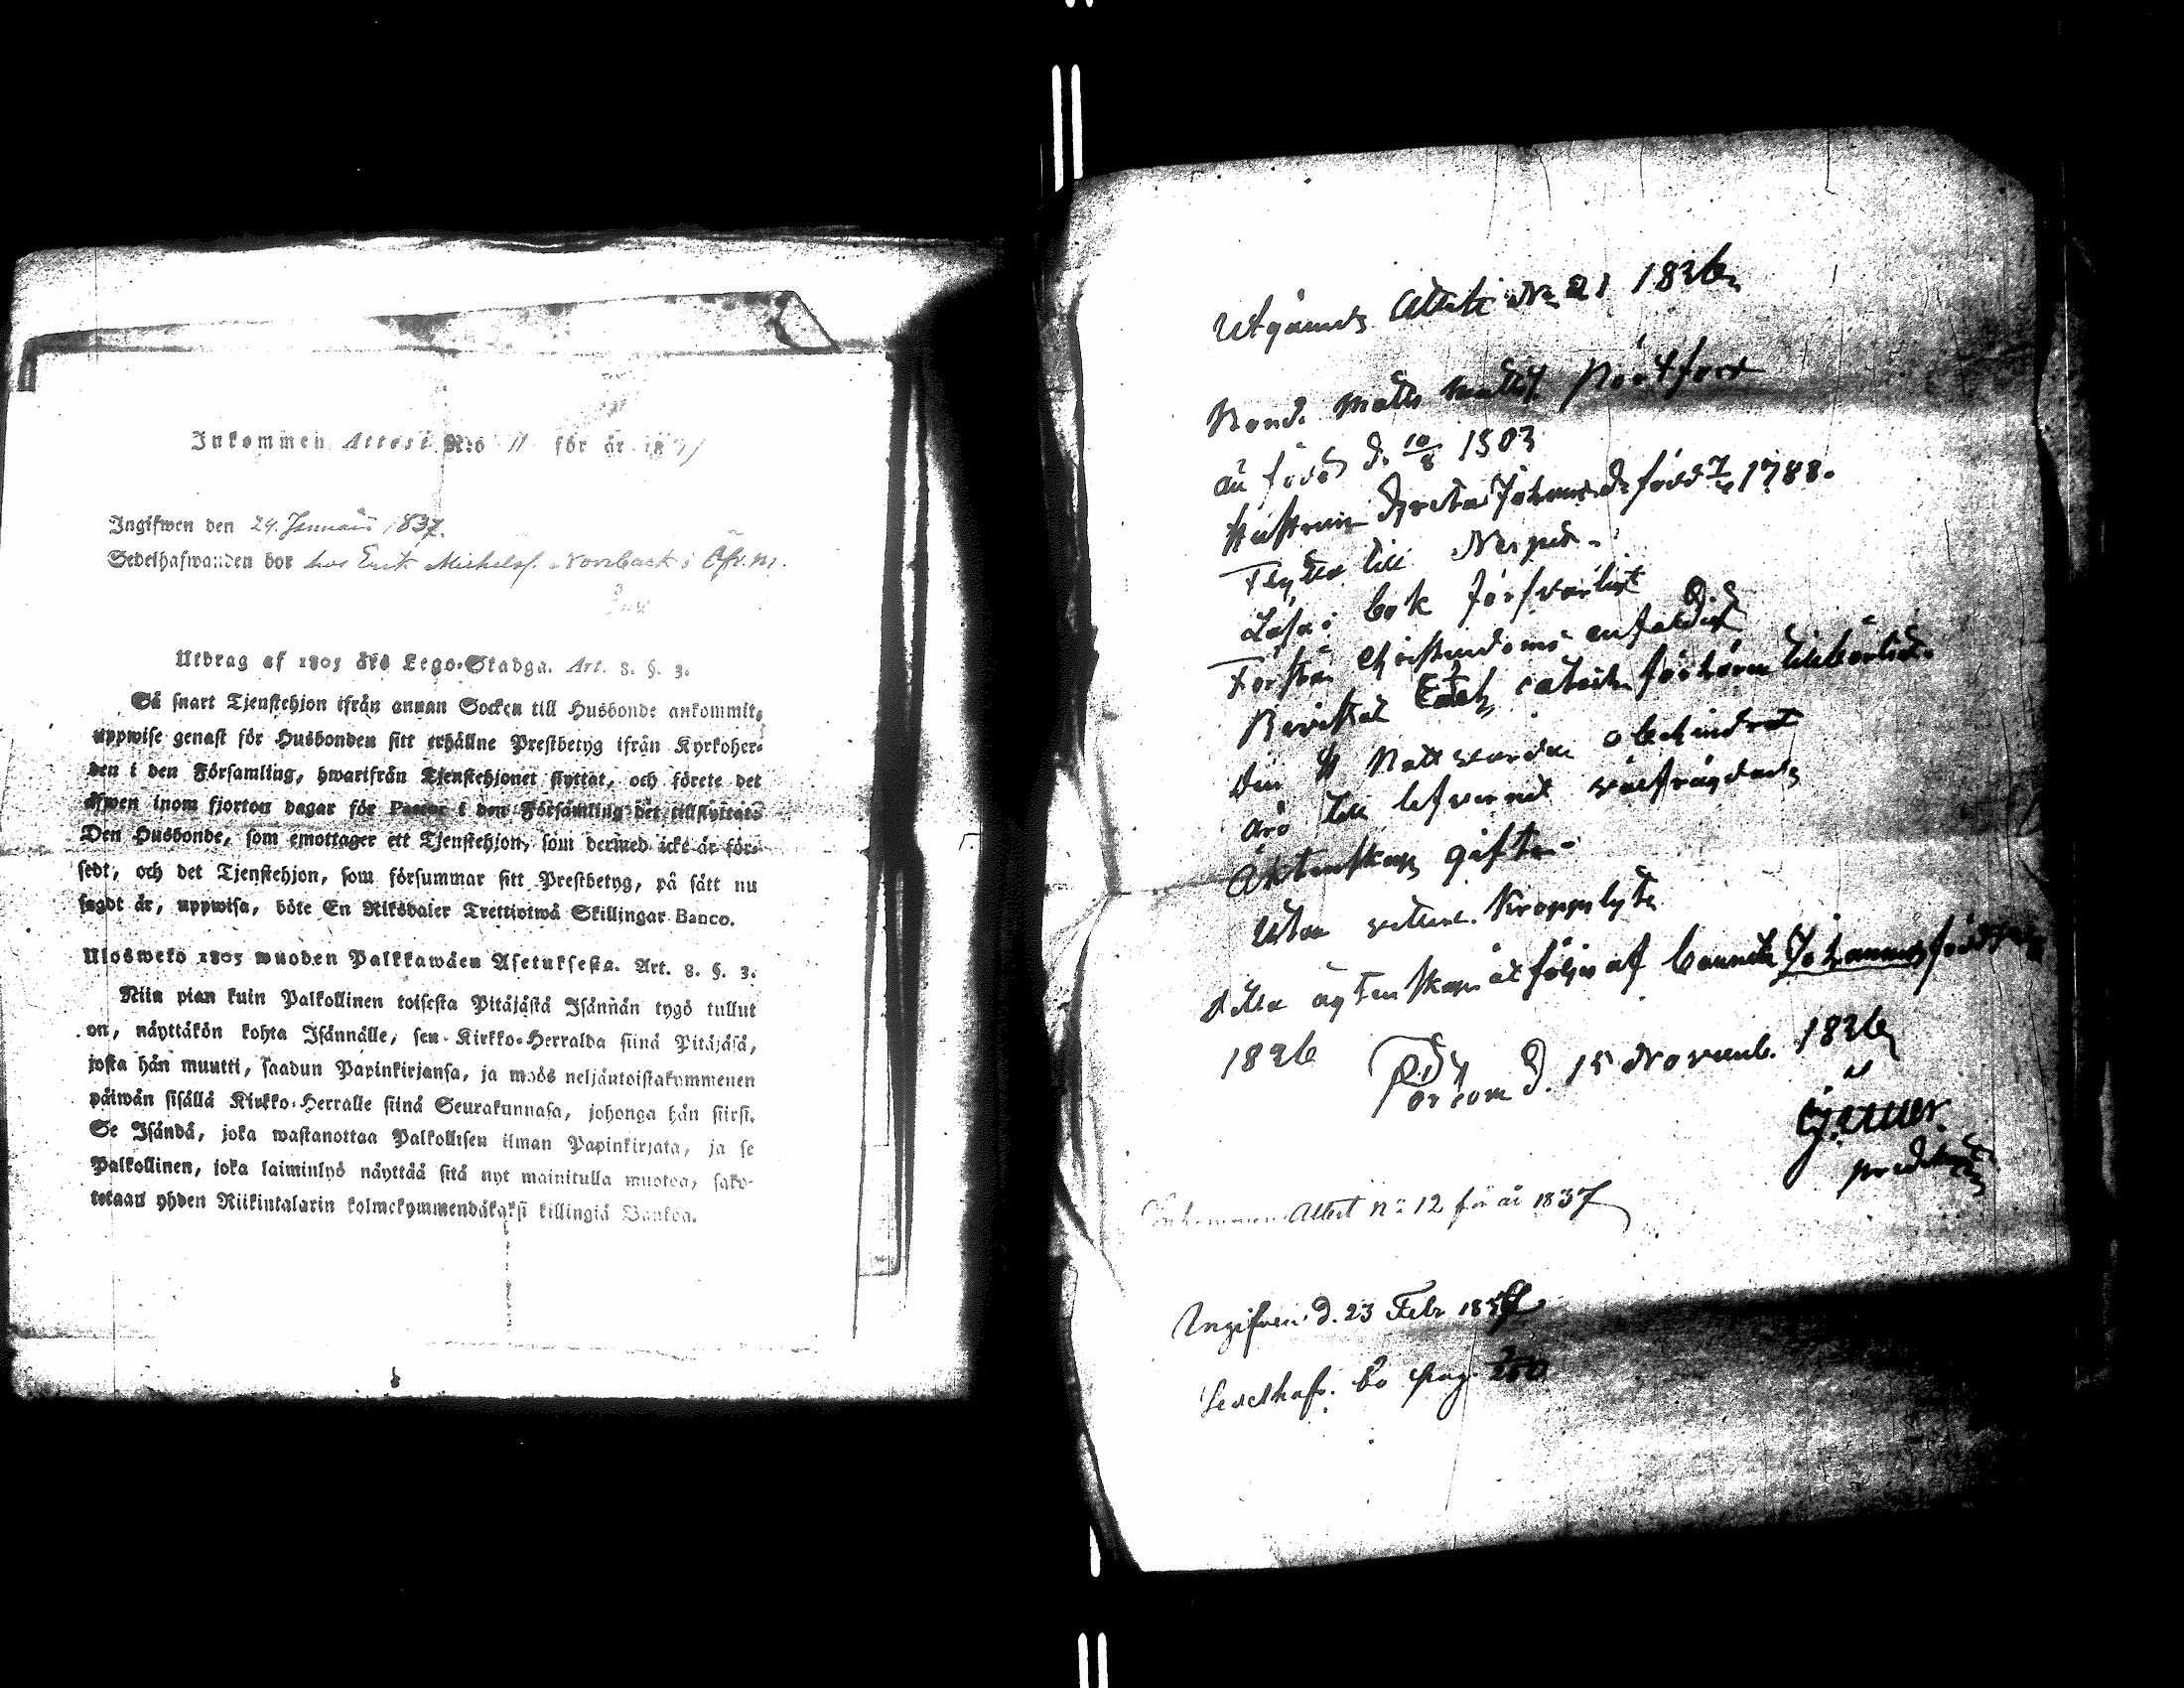 Inkommen Attest N:o 11 för år 18
Ingifwen den 24. Januari 1837.
Sedelhafwanden bor hos Erik Michelss. Norrback i Öfr. M.
Utdrag af 1805 års Lego-Stadga. Art. 8. §. 3.
Så snart Tjenstehjon ifrån annan Socken till Husbonde ankommit,
uppwise genast för Husbonden sitt erhållne Prestbetyg ifrån Kyrkoher-
den i den Församling, hwarifrån Tjenstehjonet flyttat, och förete det
äfwen inom fjorton dagar för Pastor i den Församling det tillflyttat.
Den Husbonde, som emottager ett Tjenstehjon, som dermed icke är för-
sedt, och det Tjenstehjon, som försummar sitt Prestbetyg, på sätt nu
sagdt är, uppwisa, böte En Riksdaler Trettiotwå Skillingar Banco.
Ulosweto 1805 wuoden Palkkawäen Asetuksesta. Art. 8. §. 3.
Niin pian kuin Palkollinen toisesta Pitäjästä Isännän tygö tullut
on, näyttäkön kohta Isännälle, sen Kirkko-Herralda siinä Pitäjäsä,
josta hän muutti, saadun Papinkirjansa, ja myös neljäntoistakymmenen
päiwän sisällä Kirkko-Herralle siinä Seurakunnasa, johonga hän siirsi.
Se Isändä, joka wastanottaa Palkollisen ilman Papinkirjata, ja se
Palkollinen, joka laiminlyö näyttää sitä nyt mainitulla muotoa, sako-
tetaan yhden Riikintalarin kolmekymmendäkaksi killingiä Bankoa.
Utgående Attest No 21 1836
Bond. Matts Mattss. Pörtfors
än född d. 10/8 1803
Hustrun Greta Johansd. född 1788.
Flytta till Nerpes.
Läsa i bok försvarligt
Förstå Christendoms enfaldigt
Bevistat catech. förhören tillbörligt.
Den H Nattvarden obehindrat
äro till lefvernet välfrägdade
Äktenskap gifta.
Utan kroppslyte
detta äktenskap åtföljes af barnet Johannes född
1836
d. 15 Novemb. 1836
Inkommen Attest No 12 för år 1837
Ingifven d. 23 Febr 1837
Sedelhafv. bo pag. 250